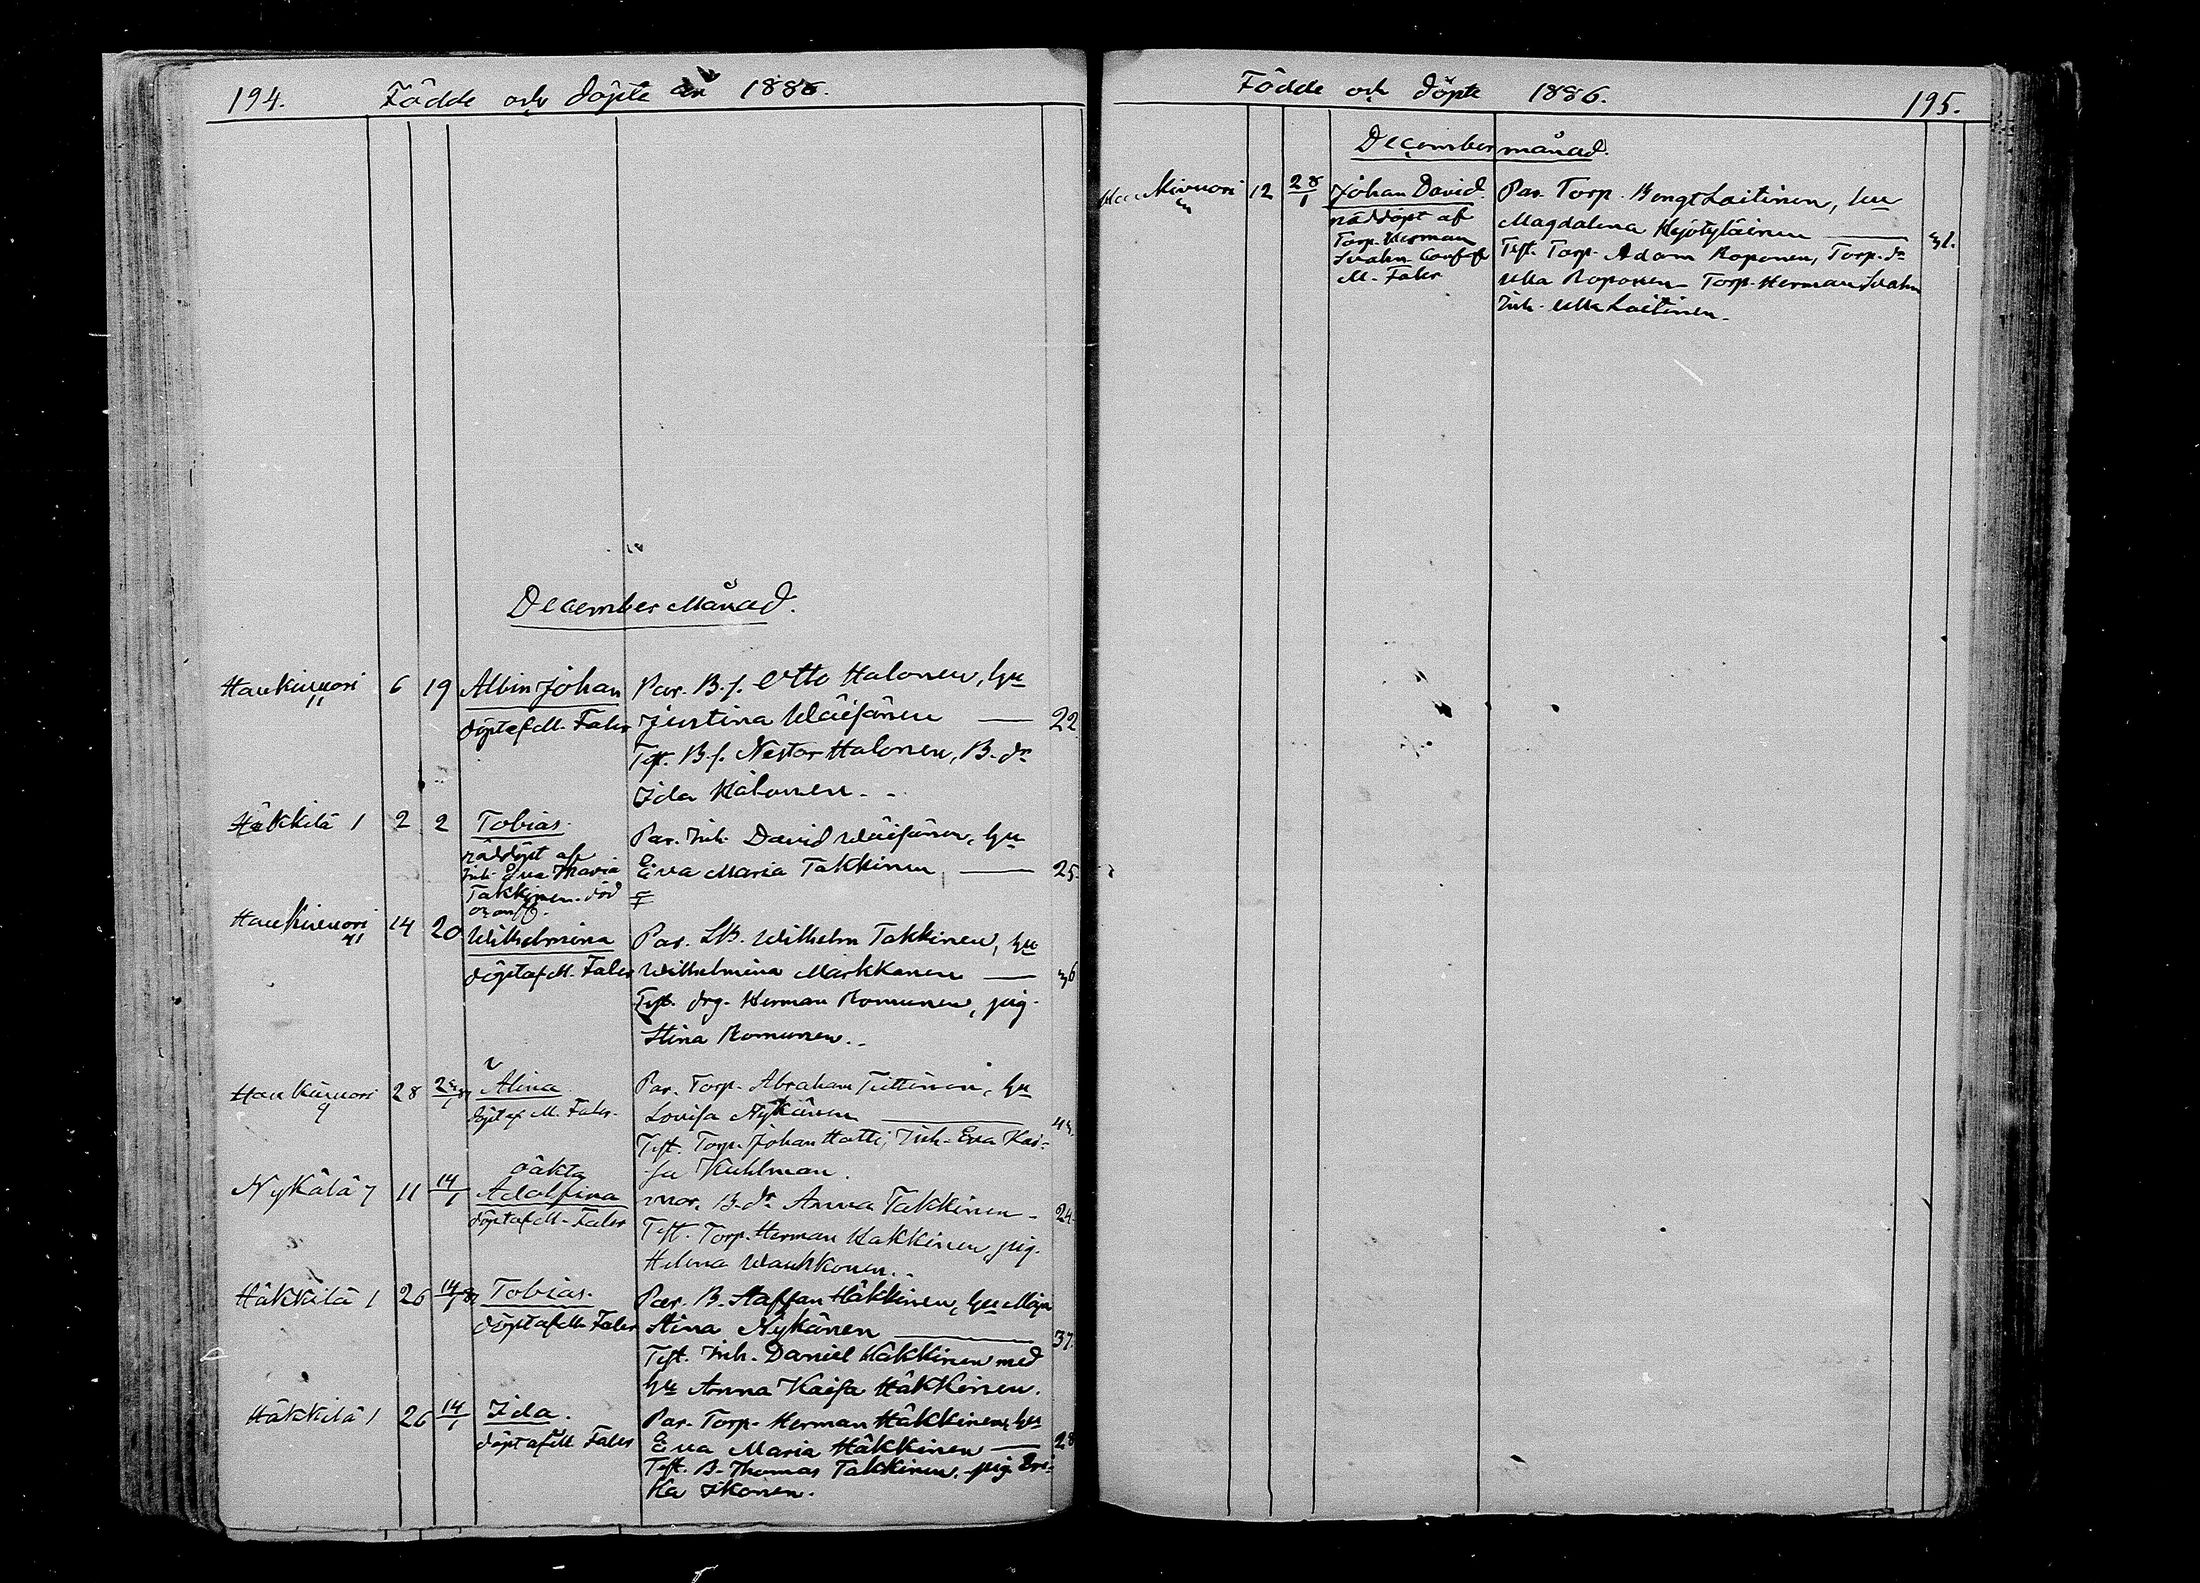 194. Födde och döpte år 1886.
December Månad.
Haukivuori 11 6 19 Albin Johan Par. B.f. Otto Halonen, hu
döpt af M. Faler Justina Wäisänen — 22
Test. B.f. Nestor Halonen, B. dr
Ida Halonen.
Häkkilä 1 2 2 Tobias. Par. Inh. David Wäisänen, hu
nöddöpt af
Inh. Eva Maria Eva Maria Takkinen — 25.
Takkinen. död
Haukivuori 14 20 Wilhelmina Par. LB. Wilhelm Takkinen, hu
döpt af M. Faler Wilhelmina Markkanen — 36
Test. drg. Herman Romunen, pig.
Stina Romunen.
Haukivuori 9 28 Alina Par. Torp. Abraham Tiittinen, hu
döpt af M. Faler. Lovisa Nykänen —
Test. Torp. Johan Hatti, Inh. Eva Kai-
sa Kuhlman.
oäkta
Nykälä 7 11 14/1 Adolfina mor. B. dr Anna Takkinen — 24.
döpt af M. Faler Test. Torp. Herman Hakkinen, pig.
Helena Wauhkonen.
Häkkilä 1 26 14/1 87 Tobias. Par. B. Staffan Häkkinen, hu Maja
döpt af M. Faler Stina Nykänen — 37.
Test. Inh. Daniel Häkkinen med
hu Anna Kaisa Häkkinen.
Häkkilä 1 26 14/1 Ida. Par. Torp. Herman Häkkinen, hu
döpt af M. Faler Eva Maria Häkkinen — 28
Test. B. Thomas Takkinen, pig. Eri-
ka Ikonen.
Födde och döpte 1886. 195.
December månad.
Haukivuori 3 12 28/1 Johan David. Par. Torp. Bengt Laitinen, hu
nöddöpt af Magdalena — 31.
Torp. Herman Test. Torp. Adam Roponen, Torp. dr
Svahn Conf. af Ulla Roponen Torp. Herman Svahn
M. Faler Inh. Ulla Laitinen.